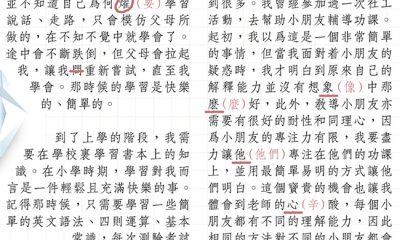 並不知道自己為何耀(要)學習
說話、走路，只會模仿父母所
做的，在不知不覺中就學會了。
途中會不斷跌倒，但父母會拉起
我，讓我重新嘗試，直至我
學會。那時候的學習是快樂
的、簡單的。
到了上學的階段，我需
要在學校裏學習書本上的知
識。在小學時期，學習對我而
言是一件輕鬆且充滿快樂的事。
記得那時候，只需要學習一些簡
單的英文語法、四則運算、基本
常識，每次測驗考試
到很多。我曾經參加過一次社工
活動，去幫助小朋友輔導功課。
起初，我以為這是一個非常簡單
的事情，但當我面對着小朋友的
疑惑時，我才明白到原來自己的
解釋能力並沒有想象(像)中那
麼(麼)好，此外，教導小朋友亦
需要有很好的耐性和同理心，因
爲小朋友的專注力有限，我要盡
力讓他(他們)專注在他們的功課
上，並用最簡單易明的方式讓他
們明白。這個寶貴的機會也讓我
體會到老師的心(辛)酸，每個小
朋友都有不同的理解能力，因此
相同的方法對不同的小朋友都會